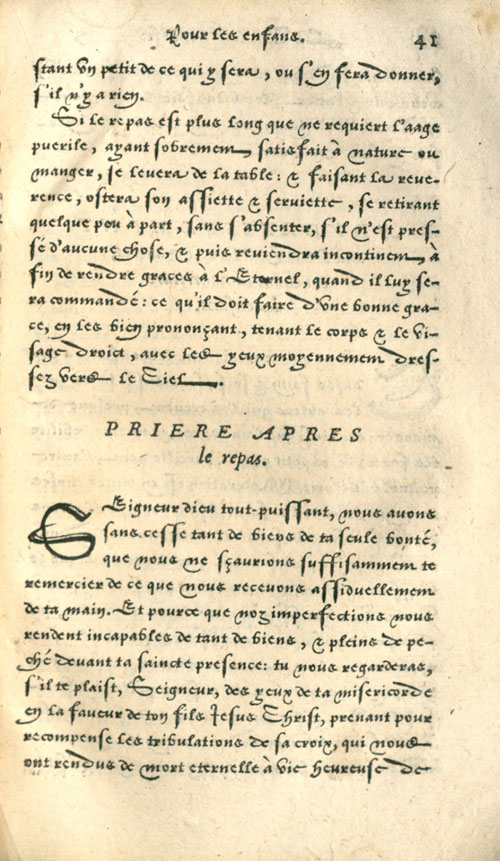 Pour les enfans. 41
stant vn petit de ce qui y sera, ou s'en fera donner,
s'il n'y a rien.
Si le repas est plus long que ne requiert l'aage
puerile, ayant sobrement satisfait à nature ou
manger, se leuera de la table: & faisant la reue-
rence, ostera son assiette & seruiette, se retirant
quelque peu à part, sans s'absenter, s'il n'est pres-
sé d'aucune chose, & puis reuiendra incontinent, à
fin de rendre graces à l'Eternel, quand il luy se-
ra commandé: ce qu'il doit faire d'vne bonne gra-
ce, en les bien prononçant, tenant le corps & le vi-
sage droict, auec les yeux moyennement dres-
sez vers le Ciel.
PRIERE APRES
le repas.
SEigneur dieu tout-puissant, nous auons
sans cesse tant de biens de ta seule bonté,
que nous ne sçaurions suffisamment te
remercier de ce que nous receuons assiduellement
de ta main. Et pource que noz imperfections nous
rendent incapables de tant de biens, & pleins de pe-
ché deuant ta saincte presence: tu nous regarderas,
s'il te plaist, Seigneur, des yeux de ta misericorde
en la faueur de ton fils Jesus Christ, prenant pour
recompense les tribulations de sa croix, qui nous
ont rendus de mort eternelle à vie heureuse de